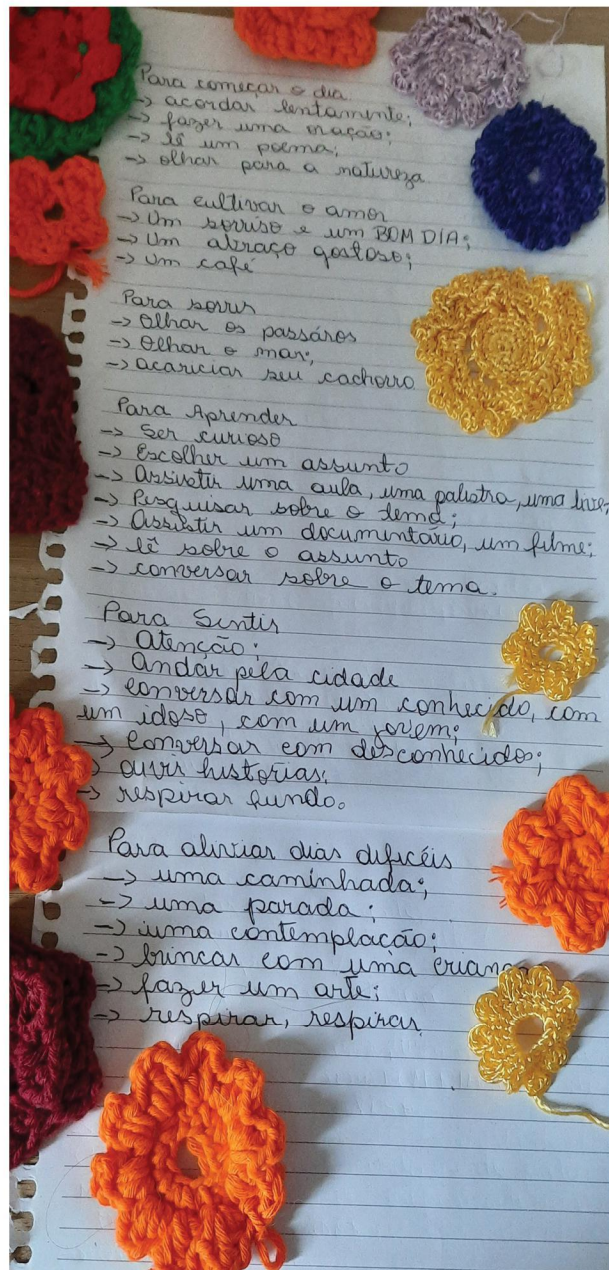 Para começar o dia
-> acordar lentamente;
-> fazer uma oração;
-> lê um poema;
-> olhar para a natureza
Para cultivar o amor
-> Um sorriso e um BOM DIA;
-> Um abraço gostoso;
-> Um café
Para sorrir
-> Olhar os passáros
-> Olhar o mar;
-> acariciar seu cachorro
Para Aprender
-> Ser curioso
-> Escolher um assunto
-> Assistir uma aula, uma palestra, uma live,
-> Pesquisar sobre o tema;
-> Assistir um documentário, um filme;
-> lê sobre o assunto
-> conversar sobre o tema.
Para Sentir
-> Atenção;
-> Andar pela cidade
-> Conversar com um conhecido, com
um idoso, com um jovem;
-> Conversar com desconhecidos;
-> ouvir histórias;
-> respirar fundo.
Para aliviar dias difícéis
-> uma caminhada;
-> uma parada;
-> uma contemplação;
-> brincar com uma criança
-> fazer um arte;
-> respirar, respirar